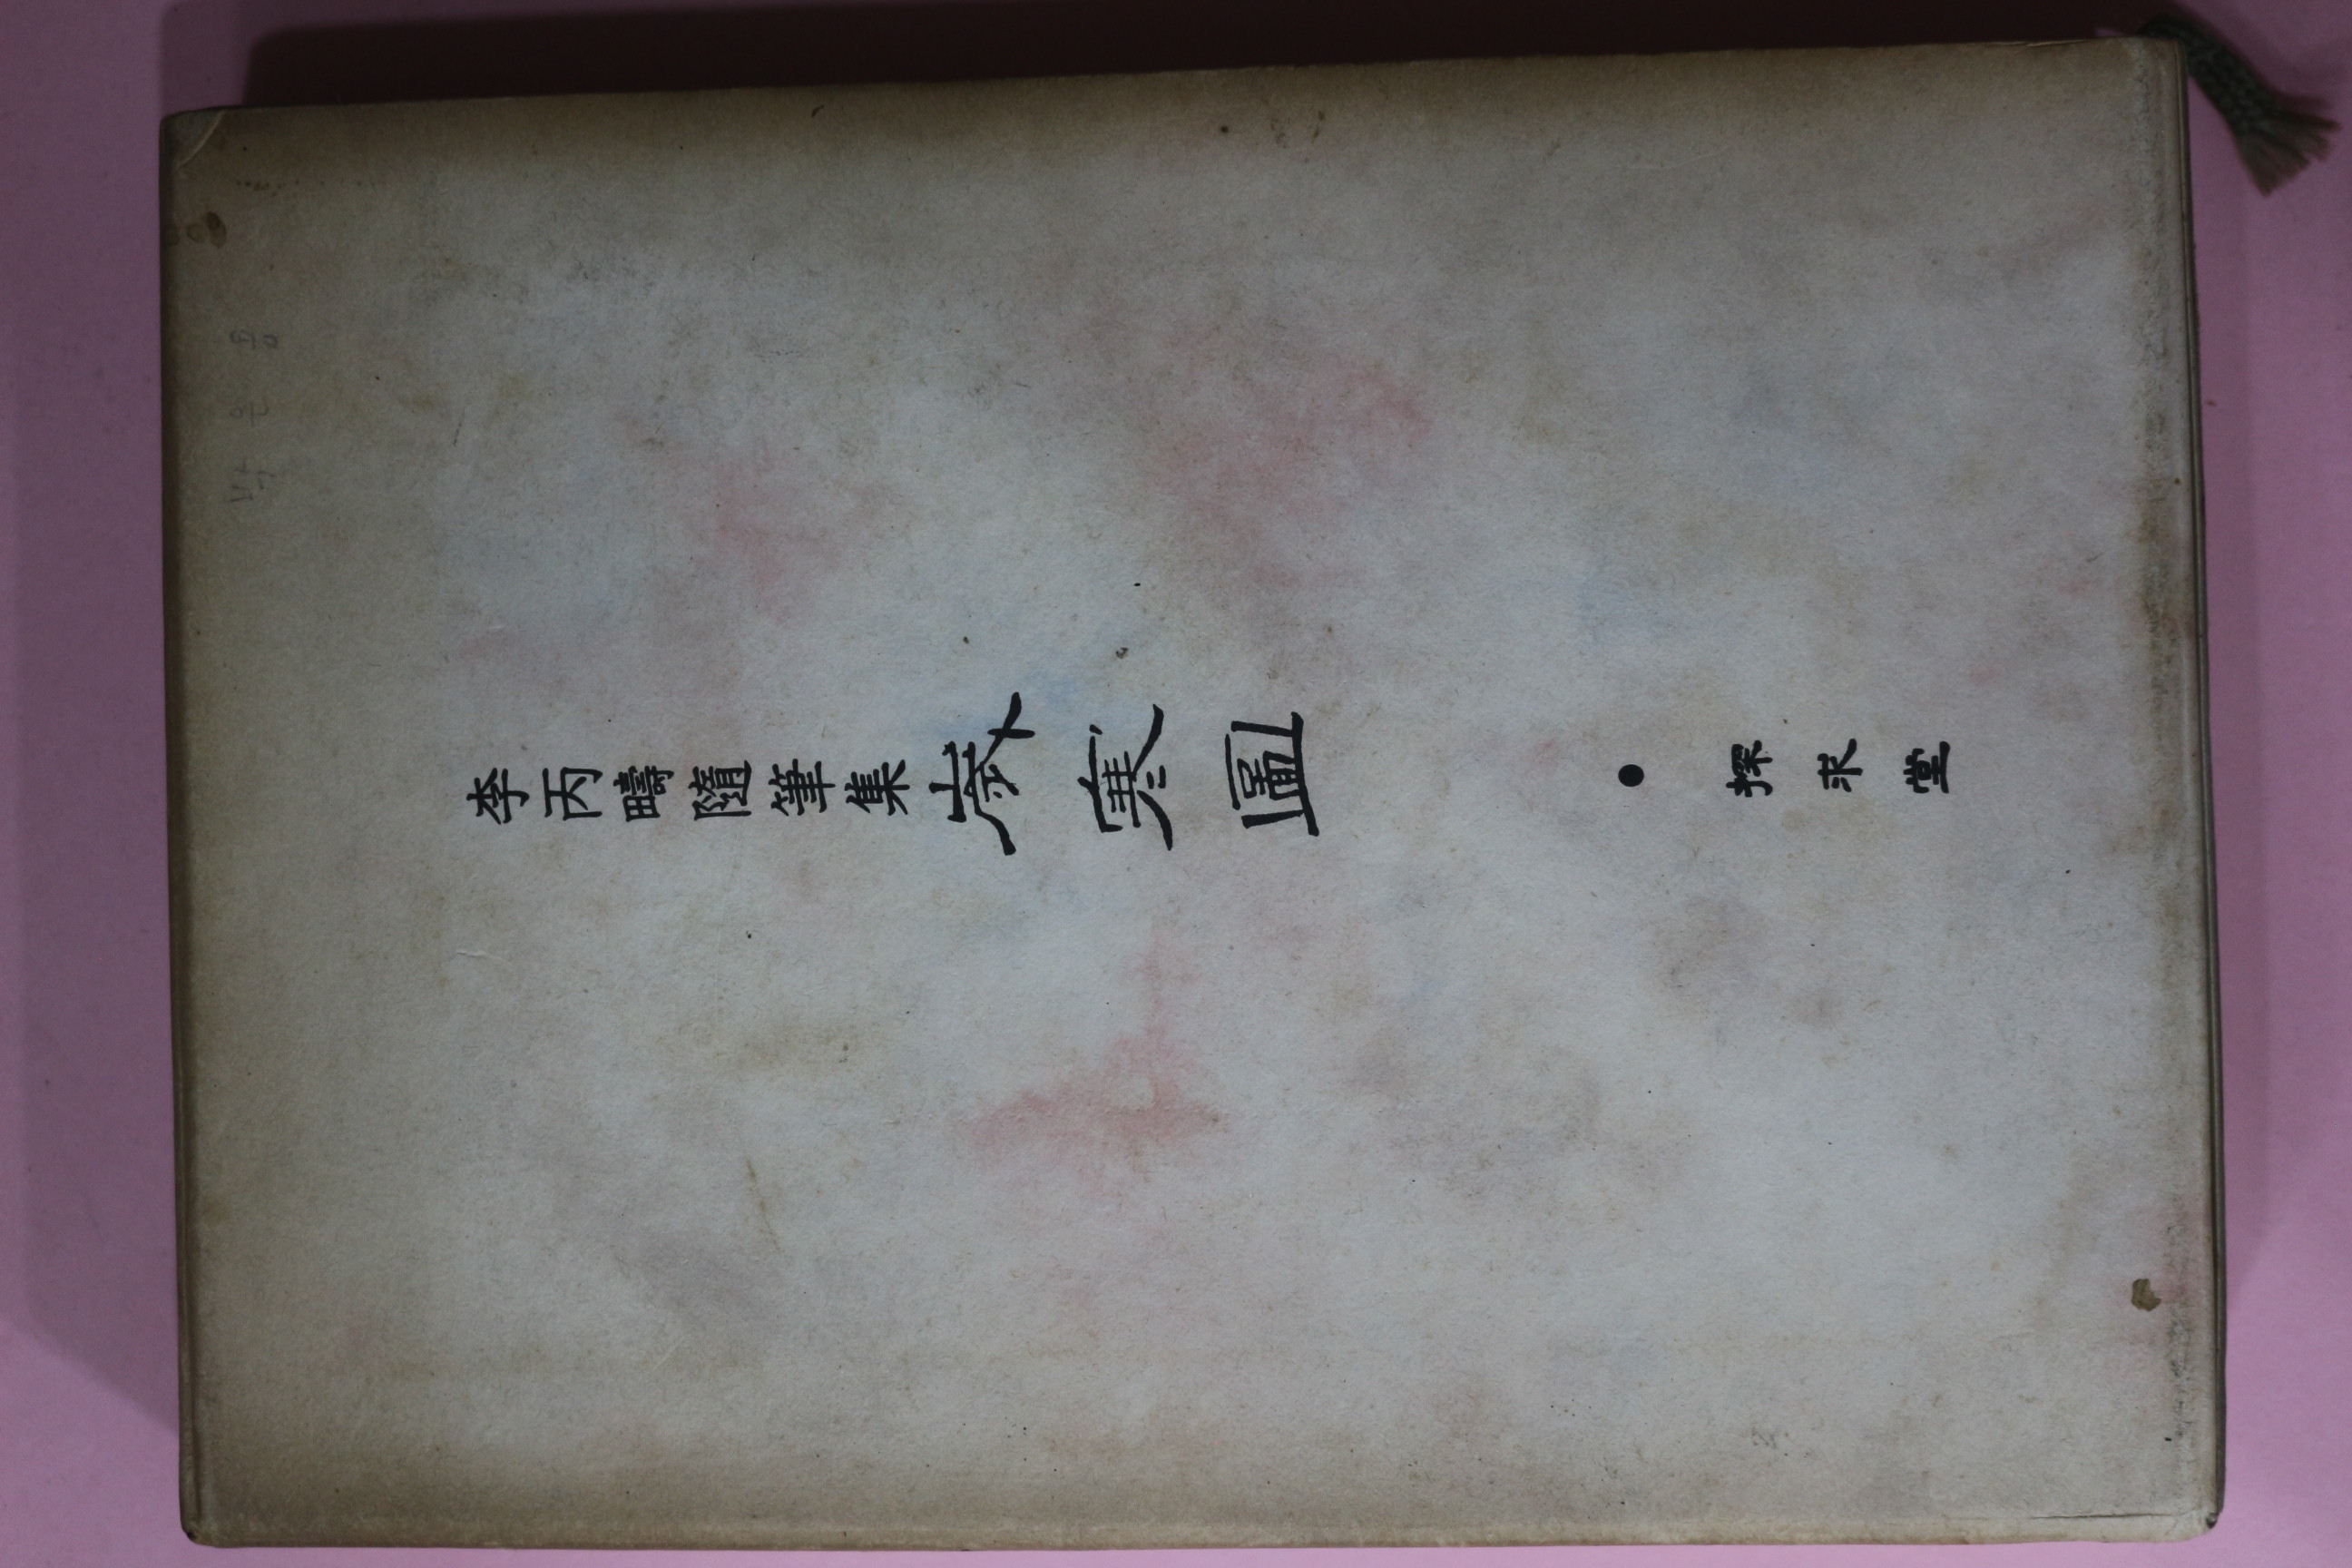 李丙疇隨筆集 歲寒圖 ● 探求堂